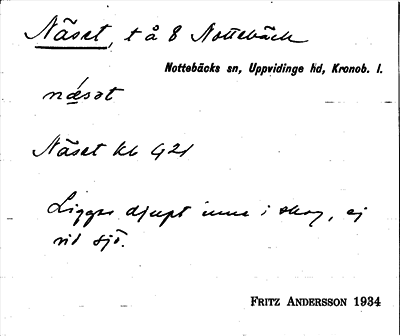 Näset, t å 8 Nottebäck
Nottebäcks sn, Uppvidinge hd, Kronob. l.
næ´sət
Näset kb G21
Ligger djupt inne i skog, ej
vid sjö.
FRITZ ANDERSSON 1934